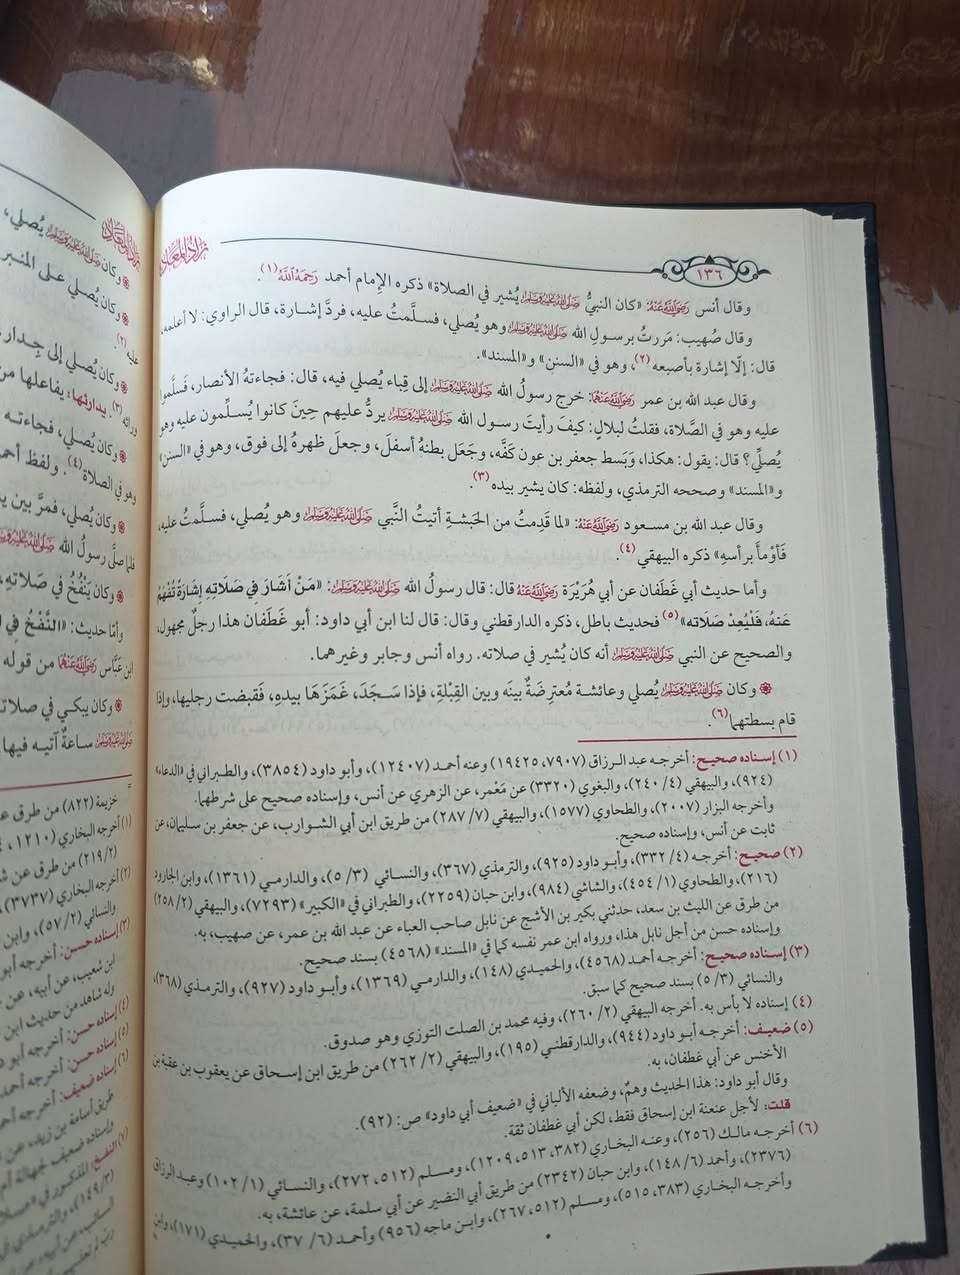 ١٣٦
زاد المعاد
وقال أنس رَضِيَ اللَّهُ عَنْهُ: «كان النبيُّ صَلَّى اللَّهُ عَلَيْهِ وَسَلَّمَ يُشير في الصلاة» ذكره الإمام أحمد رَحِمَهُ اللَّهُ(١).
وقال صُهيب: مَررتُ برسولِ الله صَلَّى اللَّهُ عَلَيْهِ وَسَلَّمَ وهو يُصلي، فسلَّمتُ عليه، فردَّ إشارة، قال الراوي: لا أعلمه،
قال: إلّا إشارة بأصبعه(٢)، وهو في «السنن» و«المسند».
وقال عبد الله بن عمر رَضِيَ اللَّهُ عَنْهُمَا: خرج رسولُ الله صَلَّى اللَّهُ عَلَيْهِ وَسَلَّمَ إلى قِباء يُصلي فيه، قال: فجاءتهُ الأنصار، فَسلَّموا
عليه وهو في الصَّلاة، فقلتُ لبلالٍ: كيفَ رأيتَ رسول الله صَلَّى اللَّهُ عَلَيْهِ وَسَلَّمَ يردُّ عليهم حِينَ كانوا يُسلِّمون عليه وهو
يُصلِّي؟ قال: يقول: هكذا، وَبَسط جعفر بن عون كَفَّه، وجَعَل بطنهُ أسفلَ، وجعلَ ظهرهُ إلى فوق، وهو في «السنن»
و«المسند» وصححه الترمذي، ولفظه: كان يشير بيده(٣).
وقال عبد الله بن مسعود رَضِيَ اللَّهُ عَنْهُ: «لما قَدِمتُ من الحَبشةِ أتيتُ النَّبي صَلَّى اللَّهُ عَلَيْهِ وَسَلَّمَ وهو يُصلي، فسلَّمتُ عليه،
فَأَوْمأَ برأسهِ» ذكره البيهقي(٤).
وأما حديث أبي غَطَفان عن أبي هُرَيْرَة رَضِيَ اللَّهُ عَنْهُ قال: قال رسولُ الله صَلَّى اللَّهُ عَلَيْهِ وَسَلَّمَ: «مَنْ أشَارَ فِي صَلَاتِهِ إشَارَةً تُفْهَمُ
عَنهُ، فَلْيُعِدْ صَلَاته»(٥) فحديث باطل، ذكره الدارقطني وقال: قال لنا ابن أبي داود: أبو غَطَفان هذا رجلٌ مجهول،
والصحيح عن النبي صَلَّى اللَّهُ عَلَيْهِ وَسَلَّمَ أنه كان يُشير في صلاته. رواه أنس وجابر وغيرهما.
وكان صَلَّى اللَّهُ عَلَيْهِ وَسَلَّمَ يُصلي وعائشة مُعترِضةٌ بينَه وبين القِبْلةِ، فإذا سَجَدَ، غَمَزَهَا بيدهِ، فَقبضت رجليها، وإذا
قام بسطتهما(٦).
(١) إسناده صحيح: أخرجه عبد الرزاق (٧٩٠٧، ١٩٤٢٥) وعنه أحمد (١٢٤٠٧)، وأبو داود (٣٨٥٤)، والطبراني في «الدعاء»
(٩٢٤)، والبيهقي (٤/ ٢٤٠)، والبغوي (٣٣٢٠) عن مَعْمر، عن الزهري عن أنس، وإسناده صحيح على شرطهما.
وأخرجه البزار (٢٠٠٧)، والطحاوي (١٥٧٧)، والبيهقي (٧/ ٢٨٧) من طريق ابن أبي الشوارب، عن جعفر بن سليمان، عن
ثابت عن أنس، وإسناده صحيح.
(٢) صحيح: أخرجه (٤/ ٣٣٢)، وأبو داود (٩٢٥)، والترمذي (٣٦٧)، والنسائي (٣/ ٥)، والدارمي (١٣٦١)، وابن الجارود
(٢١٦)، والطحاوي (١/ ٤٥٤)، والشاشي (٩٨٤)، وابن حبان (٢٢٥٩)، والطبراني في «الكبير» (٧٢٩٣)، والبيهقي (٢/ ٢٥٨)
من طرق عن الليث بن سعد، حدثني بكير بن الأشج عن نابل صاحب العباء عن عبد الله بن عمر، عن صهيب، به.
وإسناده حسن من أجل نابل هذا، ورواه ابن عمر نفسه كما في «المسند» (٤٥٦٨) بسند صحيح.
(٣) إسناده صحيح: أخرجه أحمد (٤٥٦٨)، والحميدي (١٤٨)، والدارمي (١٣٦٩)، وأبو داود (٩٢٧)، والترمذي (٣٦٨)،
والنسائي (٣/ ٥) بسند صحيح كما سبق.
(٤) إسناده لا بأس به. أخرجه البيهقي (٢/ ٢٦٠)، وفيه محمد بن الصلت التوزي وهو صدوق.
(٥) ضعيف: أخرجه أبو داود (٩٤٤)، والدارقطني (١٩٥)، والبيهقي (٢/ ٢٦٢) من طريق ابن إسحاق عن يعقوب بن عقبة بن
الأخنس عن أبي غطفان، به.
وقال أبو داود: هذا الحديث وهمٌ، وضعفه الألباني في «ضعيف أبي داود» ص: (٩٢).
قلت: لأجل عنعنة ابن إسحاق فقط، لكن أبي غطفان ثقة.
(٦) أخرجه مالك (٢٥٦)، وعنه البخاري (٣٨٢، ٥١٣، ١٢٠٩)، ومسلم (٥١٢، ٢٧٢)، والنسائي (١/ ١٠٢) وعبد الرزاق
(٢٣٧٦)، وأحمد (٦/ ١٤٨)، وابن حبان (٢٣٤٢) من طريق أبي النضير عن أبي سلمة، عن عائشة، به.
وأخرجه البخاري (٣٨٣، ٥١٥)، ومسلم (٥١٢، ٢٦٧)، وابن ماجه (٩٥٦) وأحمد (٦/ ٣٧)، والحميدي (١٧١)، وابن
وكان صَلَّى اللَّهُ عَلَيْهِ وَسَلَّمَ يُصلي،
وكان يُصلي على المنبر
عليه(٢).
وكان يُصلي إلى جِدار
ورائه(٣). يدارئها: يفاعلها من
وكان يُصلي، فجاءته
وهو في الصلاة(٤). ولفظ أحمد
وكان يُصلي، فمرَّ بين يد
فلما صلَّى رسولُ الله صَلَّى اللَّهُ عَلَيْهِ وَسَلَّمَ
وكان يَنْفُخُ في صَلاتِهِ،
وأمّا حديث: «النَّفْخُ فِي
ابن عَبَّاس رَضِيَ اللَّهُ عَنْهُمَا من قوله
وكان يبكي في صلاته
صَلَّى اللَّهُ عَلَيْهِ وَسَلَّمَ ساعةٌ آتيه فيها
خزيمة (٨٢٢) من طرق عن
(١) أخرجه البخاري (١٢١٠،
(٢/ ٢١٩) من طرق عن
(٢) أخرجه البخاري (٣٧٣٧)،
والنسائي (٢/ ٥٧)، وابن
(٣) إسناده حسن: أخرجه أبو
ابن شعيب، عن أبيه، عن
وله شاهد من حديث ابن
(٤) إسناده حسن: أخرجه أبو
(٥) إسناده حسن: أخرجه أحمد
(٦) إسناده ضعيف: أخرجه
طريق أسامة بن زيد، عن
وإسناده ضعيف لجهالة أم
(٧) النفخ: المذكور في
(٣/ ١٤٩)، والترمذي